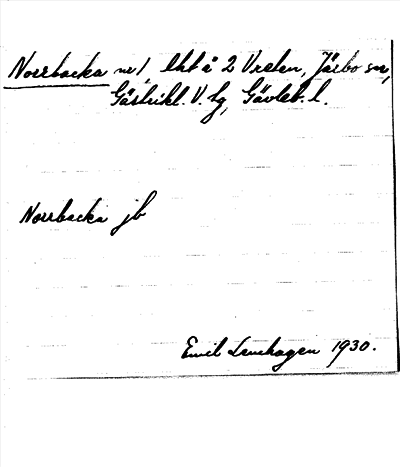 Norrbacka nr 1, lht å 2 Vreten, Järbo sn,
Gästrikl. V. tg, Gävleb. l.
Norrbacka jb
Emil Lenhagen 1930.